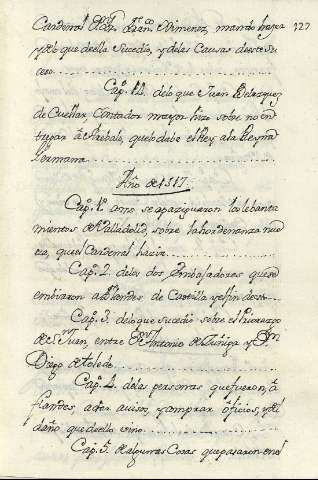 Cardenal Dn. Fr. Franco. Ximenez, mandó hazer 127
y delo que de ella Sucedió, y delas Causas deste Su-
ceso
Capo. 12. delo que Juan Velazquez
de Cuellar, Contador mayor hizo sobre no en-
tregar â Arebalo, que lo dabe el Rey, ala Reyna
Germana
Año de 1517.
Capo. 1o. como se apaziguaron los lebanta
mientos de Valladolid, sobre la hordenanza nue
va, que el Cardenal hazia.
Capo. 2. delos dos Embajadores que se
embiaron a Flandes de Castilla y el fin desto
Capo. 3. delo que sucedió sobre el Priorazgo
de Sn. Juan, entre Dn. Antonio de Zuñiga y Dn.
Diego de toledo
Capo. 4. delas personas que fueron, â
flandes, a dar avisos, y comprar ôficios, y del
daño, que de ello vino
Capo. 5. de algunas Cosas que pasaron en el